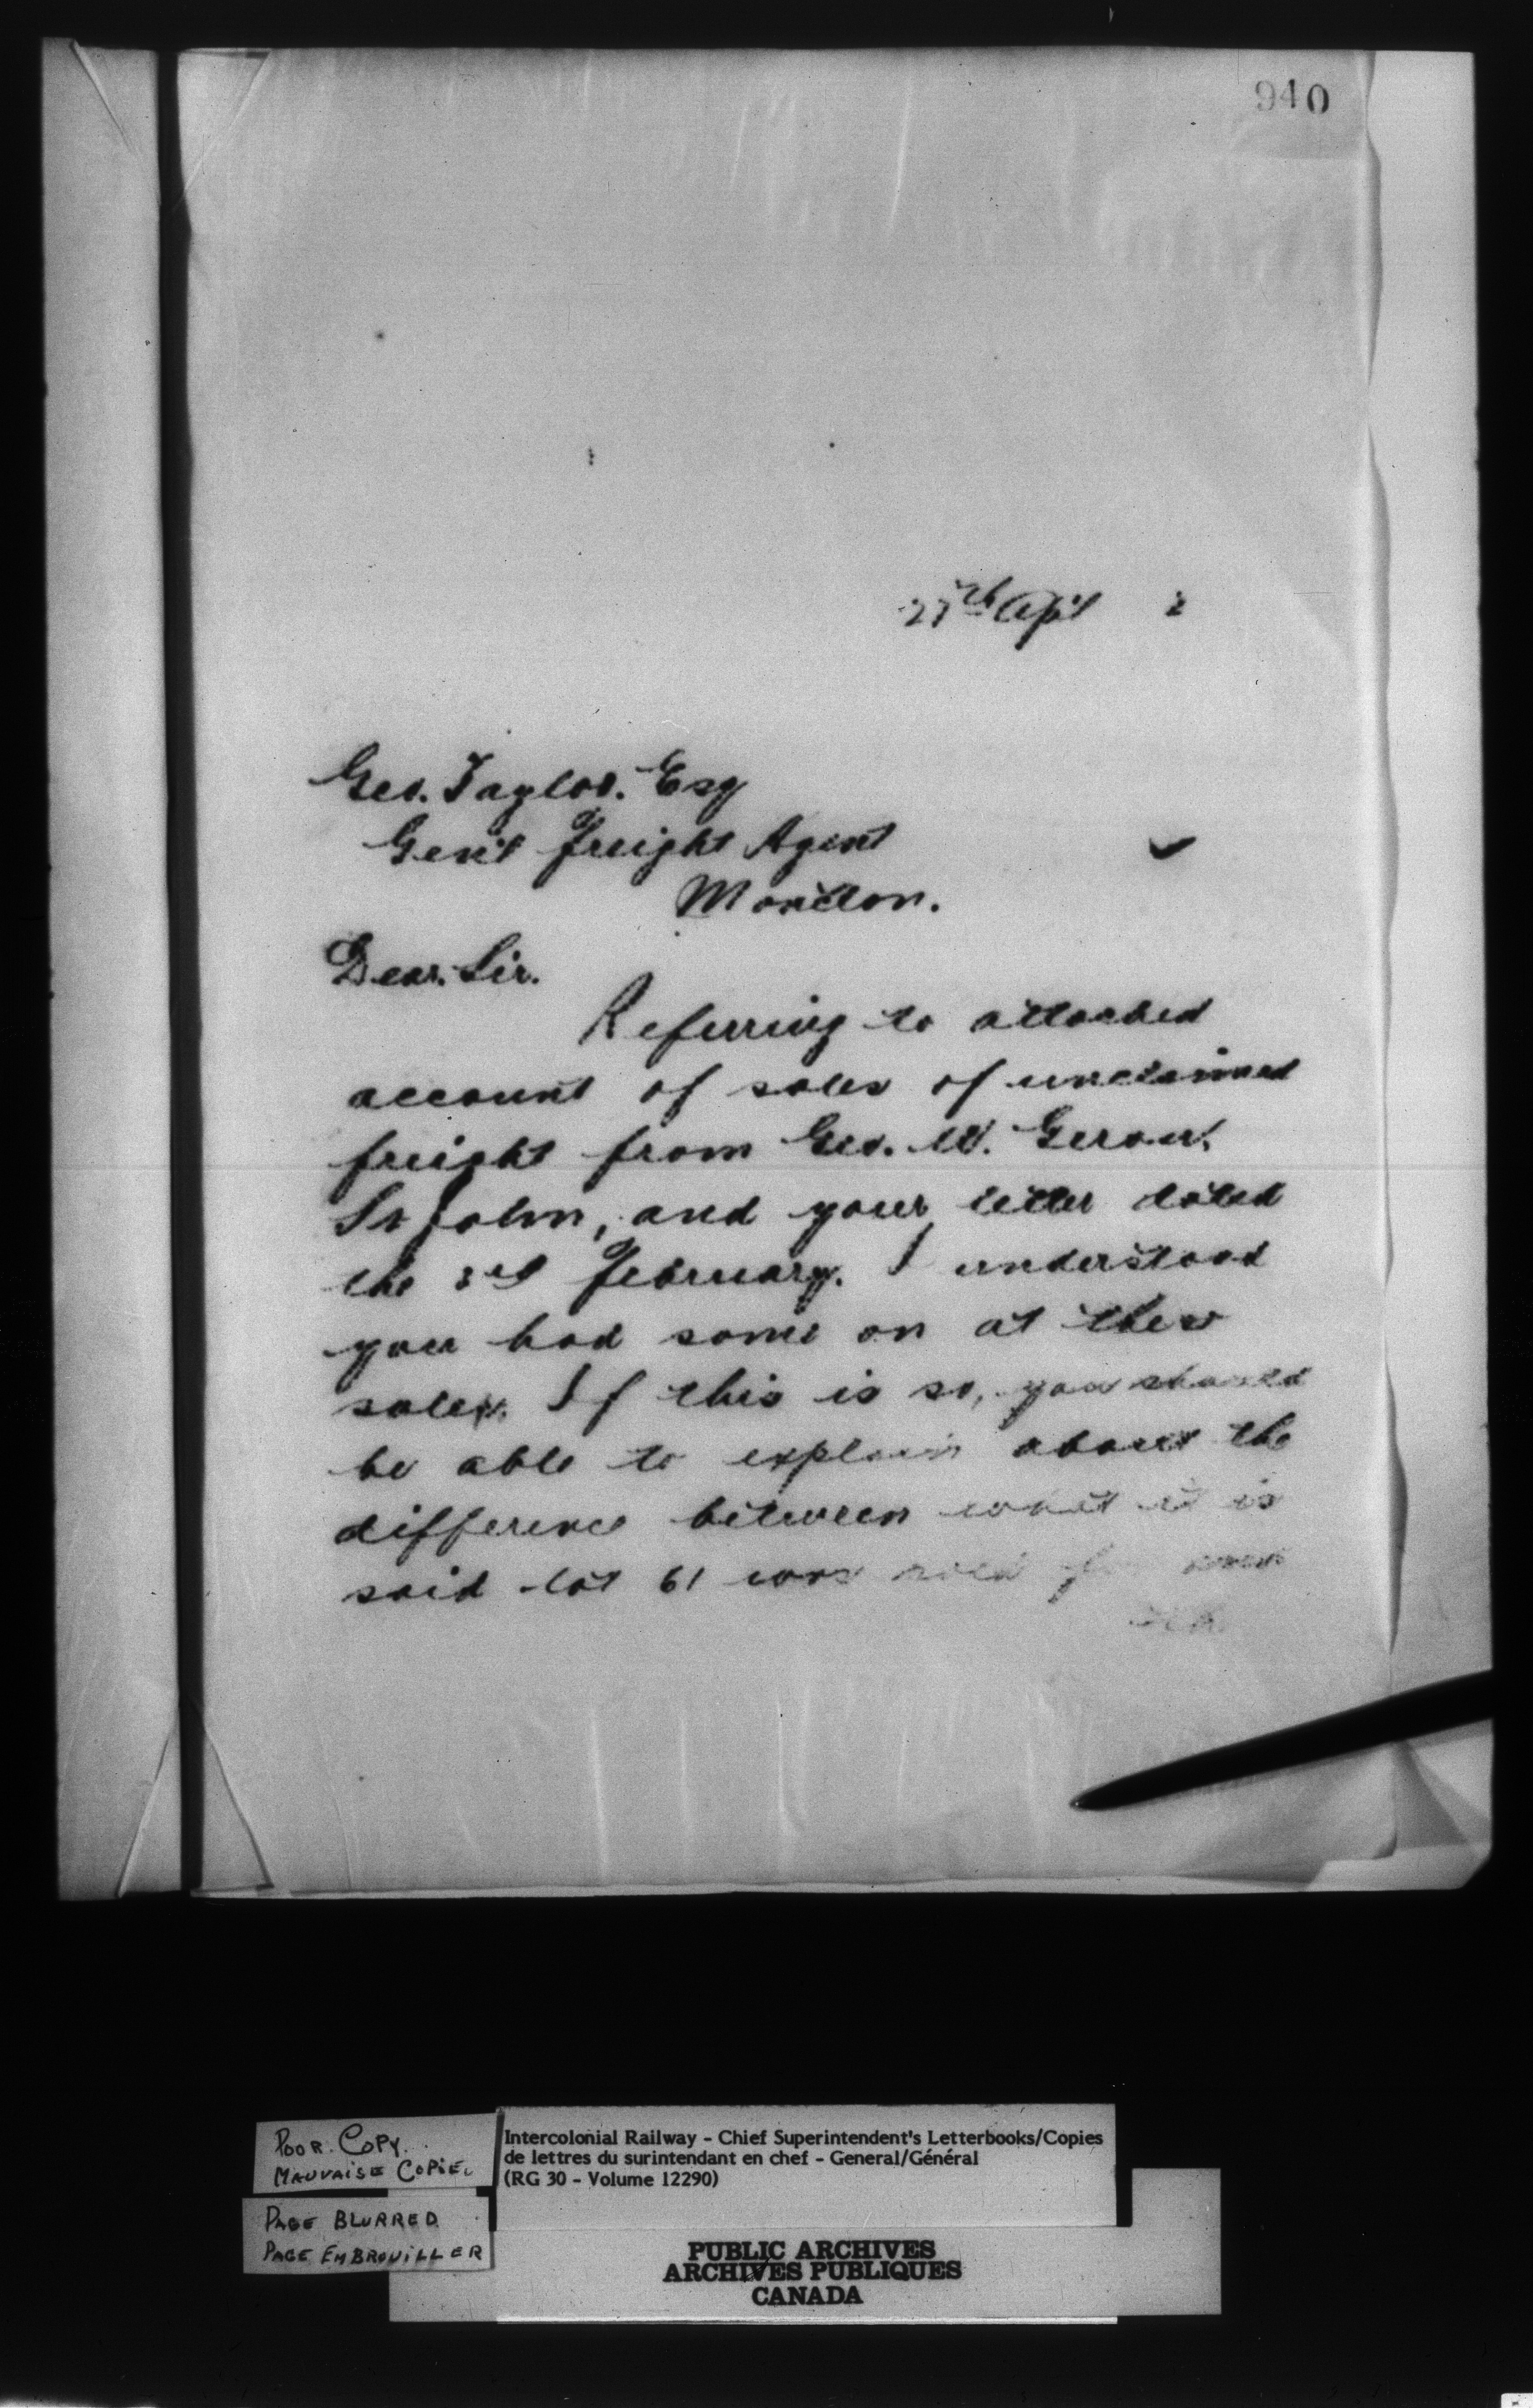 940
27th April 2
Geo. Taylor. Esq
Gen'l Freight Agent
Moncton.
Dear Sir.
Referring to attached
account of sales of unclaimed
freight from Geo. W. Gerow.
St John, and your letter dated
the 3rd February. I understood
you had some on at these
sales. If this is so, you should
be able to explain about the
difference between what it is
said lot 61 was sold for
POOR COPY.
MAUVAISE COPIE.
PAGE BLURRED
PAGE EMBROUILLER
Intercolonial Railway - Chief Superintendent's Letterbooks/Copies
de lettres du surintendant en chef - General/Général
(RG 30 - Volume 12290)
PUBLIC ARCHIVES
ARCHIVES PUBLIQUES
CANADA